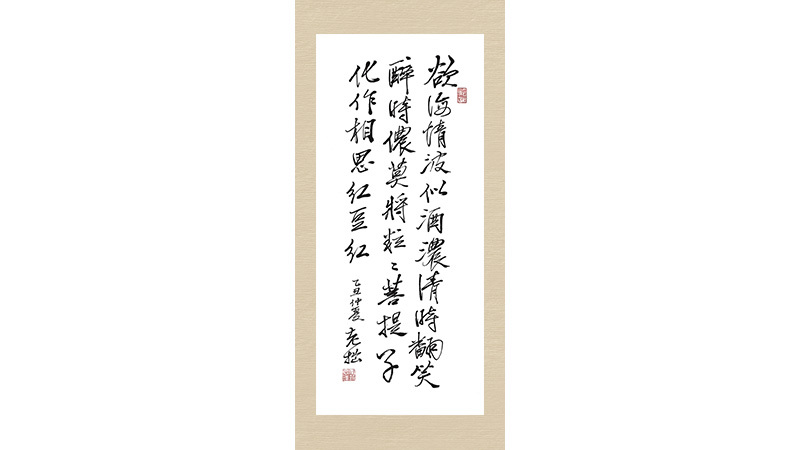 欲海情波似酒濃清時翻笑
醉時儂莫將粒〻菩提子
化作相思紅豆紅
乙丑仲夏 老拙